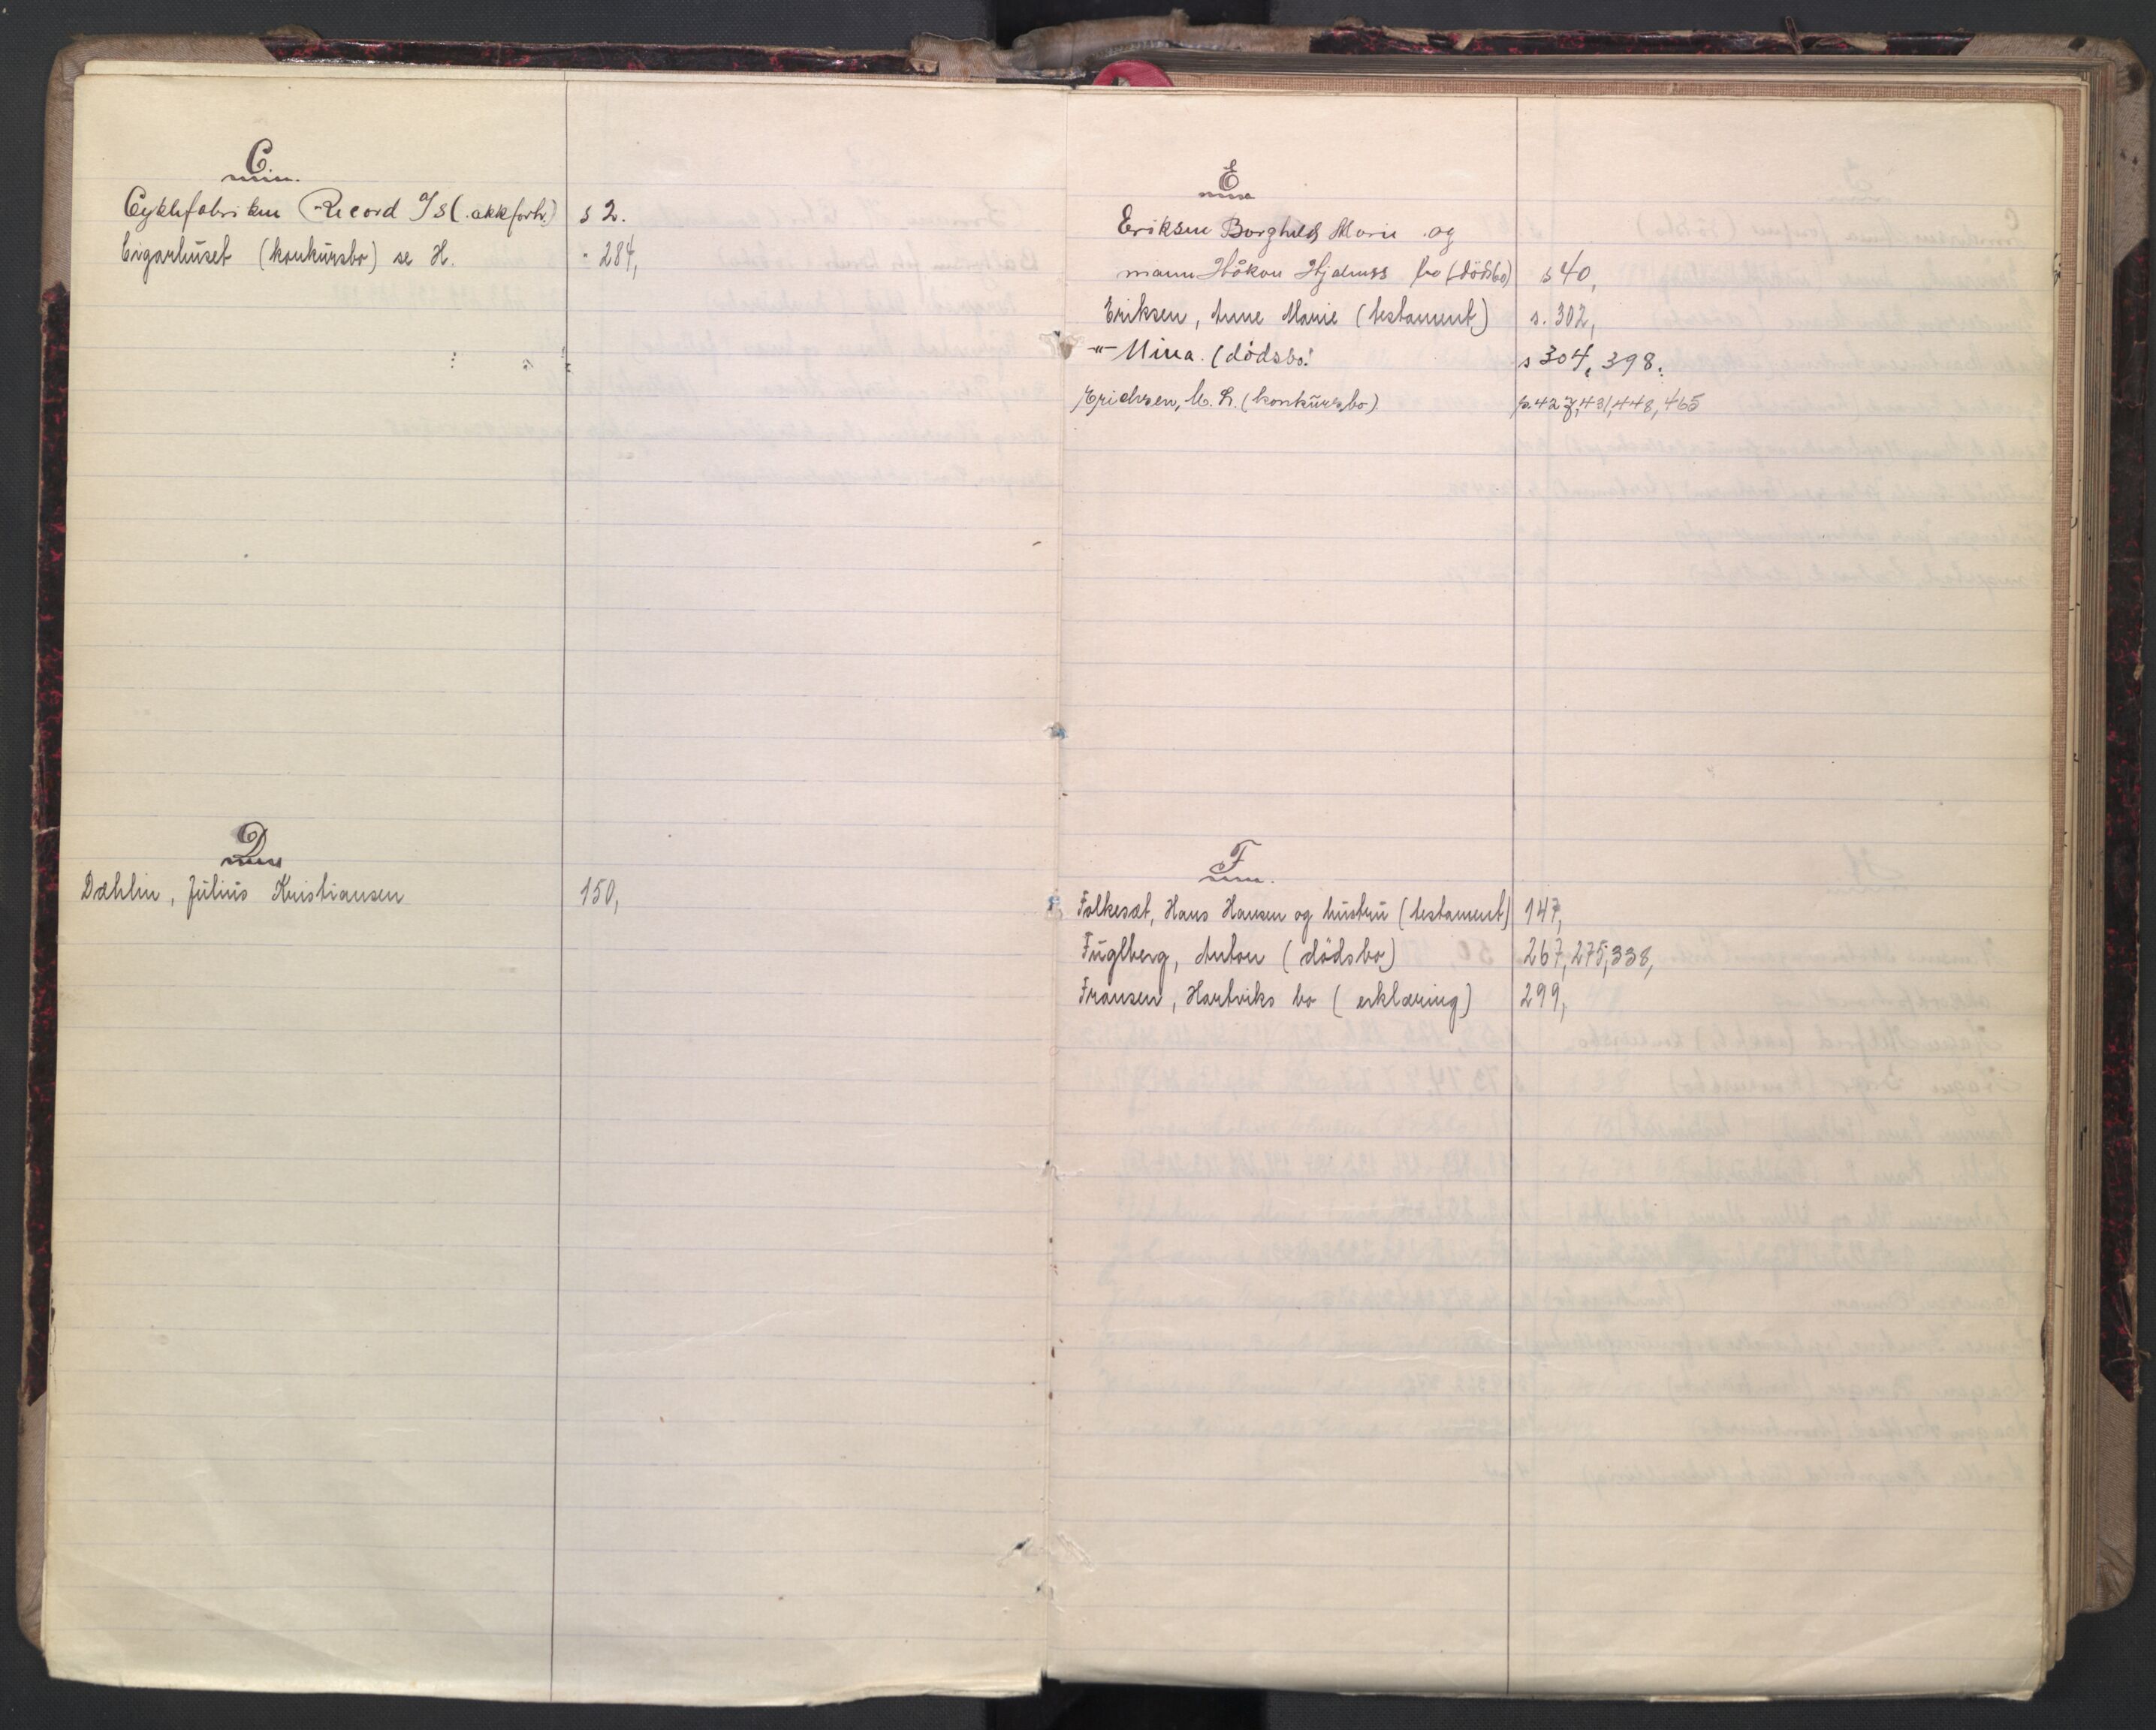 C.
Cyklefabriken Record I/s (akkforh.) s 2.
Cigarhúset (konkúrsbo) se H. " 284,
D
Dæhlin, Júliús Kristiansen 150,
E
Eriksen Borghild Marie og
mann Håkon Hjalmars bo (dödsbo) s 40,
Eriksen, Anne Marie (testament) s. 302,
-"- Mina. (dödsbo) s 304, 398.
Erichsen, C. L. (konkúrsbo). s. 427, 431, 448, 465
F
Folkesæt, Hans Hansen og hústrú (testament) 147,
Fúglberg, Anton (dödsbo) 267, 275, 338,
Fransen, Hartviks bo (erklæring) 299,